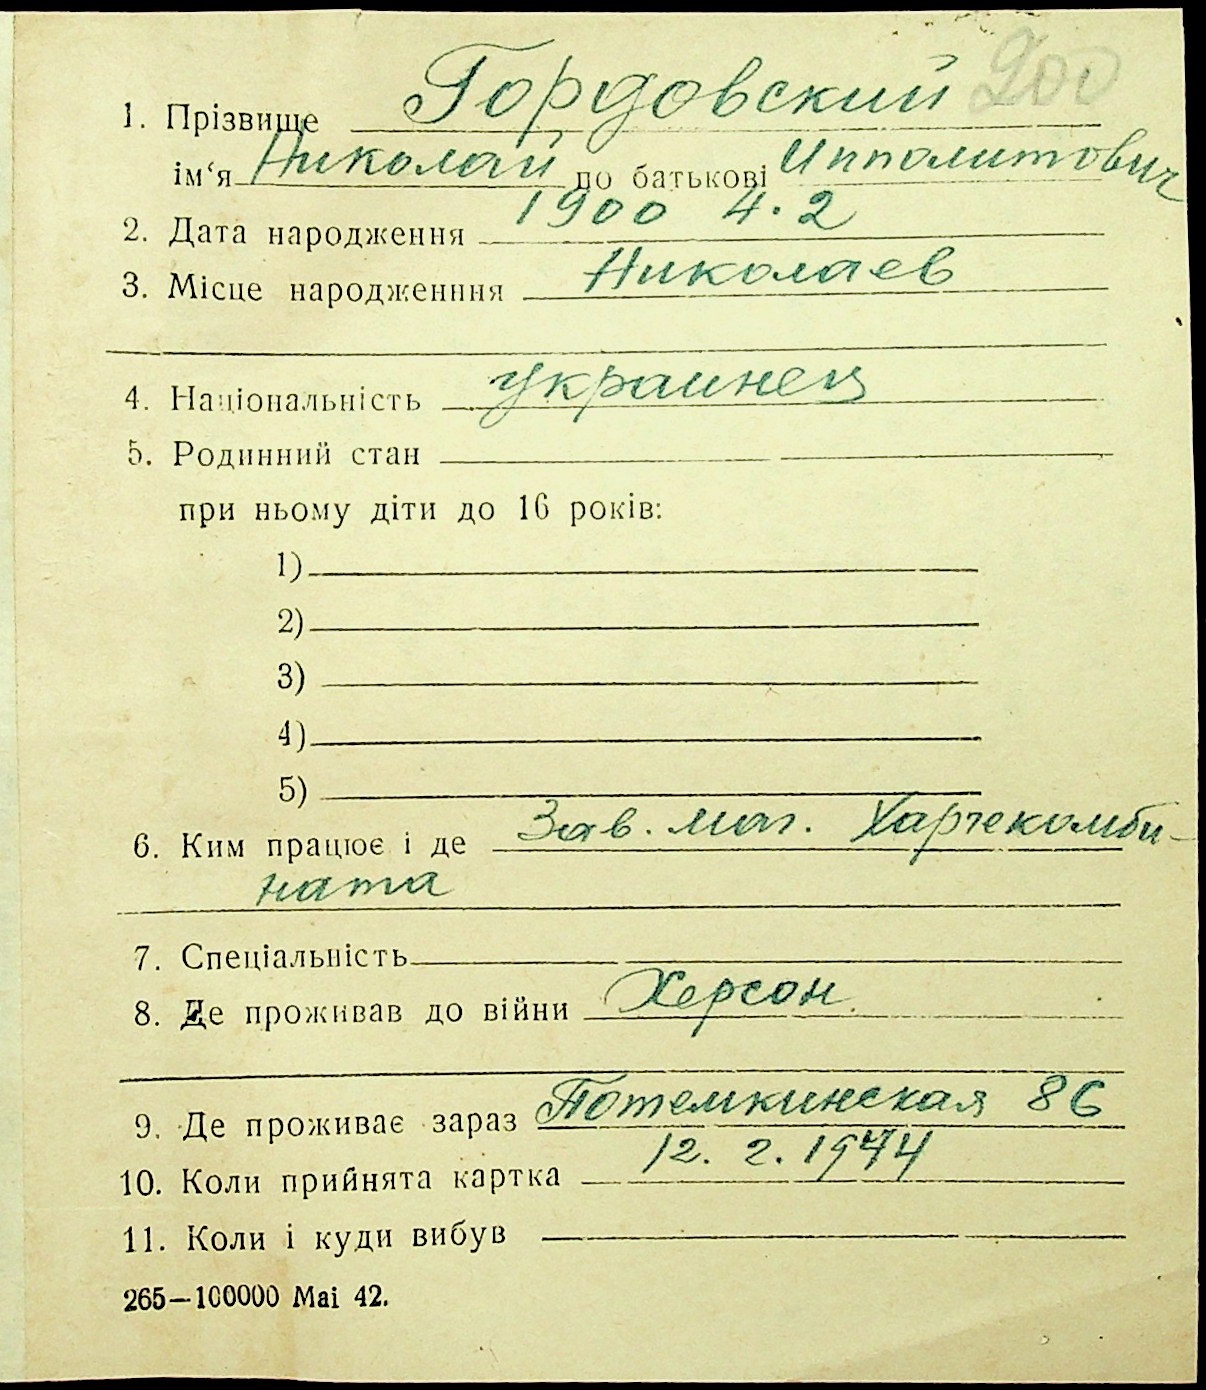 1. Прізвище Гордовский 200
ім‘я Николай по батькові Ипполитович
2. Дата народження 1900 4.2
3. Місце народженння Николаев
4. Національність украинец
5. Родинний стан
при ньому діти до 16 років:
1)
2)
3)
4)
5)
6. Ким працює і де Зав. маг. Харчекомби-
ната
7. Спеціальність
8. Де проживав до війни Херсон
9. Де проживає зараз Потемкинская 86
10. Коли прийнята картка 12. 2. 1944
11. Коли і куди вибув
265—100000 Mai 42.